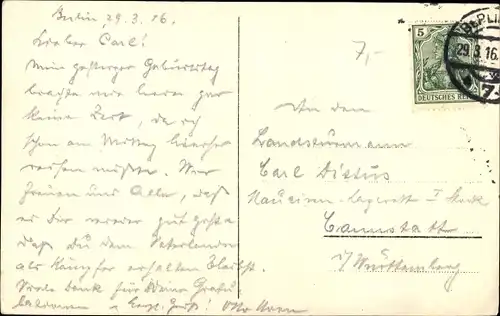 Berlin, 29.3.16.
Lieber Carl!
Mein gestriger Geburtstag
brachte mir leider gar
keine Zeit, da ich
schon am Mittag hierher
reisen mußte. Wir
freuen uns Alle, daß
es Dir wieder gut geht &
daß Du dem Vaterlande
als Kämpfer erhalten bleibst.
Dank für Deine
Gruß! Otto
7,-
5
DEUTSCHES REICH
BERLIN
29.3.16.
7-
An den
Landsturmmann
Carl Distus
I. Stock
Cannstatt
i/ Württemberg